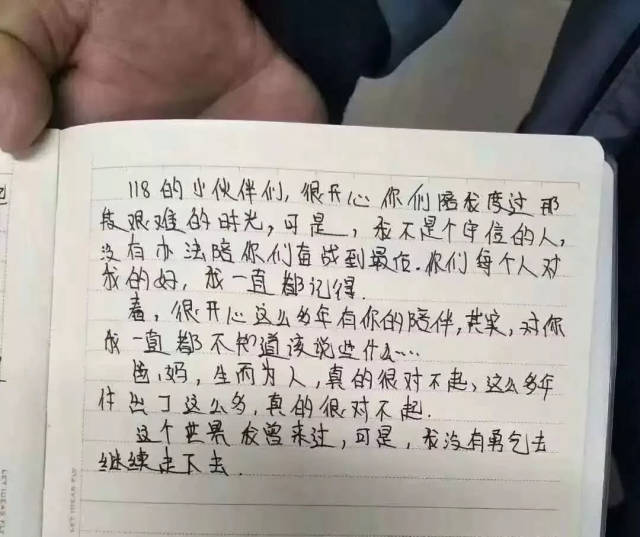 118的小伙伴们,很开心你们陪我度过那
段艰难的时光,可是,我不是个守信的人,
没有办法陪你们奋战到最后.你们每个人对
我的好,我一直都记得.
着,很开心这么多年有你的陪伴,其实,对你
我一直都不知道该说些什么……
爸,妈,生而为人,真的很对不起,这么多年
付出了这么多,真的很对不起.
这个世界我曾来过,可是,我没有勇气去
继续走下去.